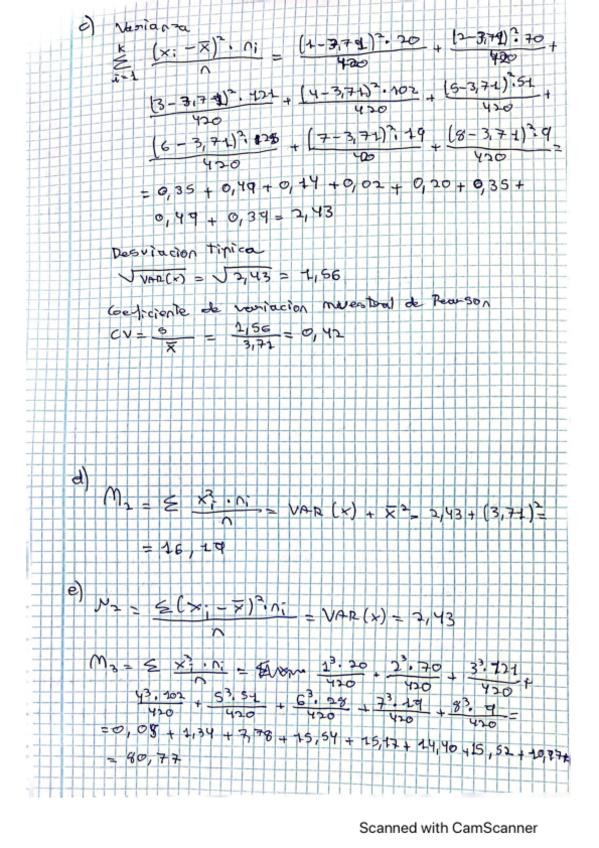 c) Varianza
k Σ i=1 (xi - x̄)² · ni / n = (1-3,71)² · 20 / 420 + (2-3,71)² · 70 / 420 +
(3-3,71)² · 121 / 420 + (4-3,71)² · 102 / 420 + (5-3,71)² · 51 / 420 +
(6-3,71)² · 28 / 420 + (7-3,71)² · 19 / 420 + (8-3,71)² · 9 / 420 =
= 0,35 + 0,49 + 0,14 + 0,02 + 0,20 + 0,35 +
0,49 + 0,39 = 2,43
Desviacion tipica
√VAR(x) = √2,43 = 1,56
Coeficiente de variacion muestral de Pearson
CV = s / x̄ = 1,56 / 3,71 = 0,42
d)
M2 = Σ xi² · ni / n = VAR (x) + x̄² = 2,43 + (3,71)² =
= 16,19
e)
μ2 = Σ(xi - x̄)² · ni / n = VAR(x) = 2,43
M3 = Σ xi³ · ni / n = 1³ · 20 / 420 + 2³ · 70 / 420 + 3³ · 121 / 420 +
4³ · 102 / 420 + 5³ · 51 / 420 + 6³ · 28 / 420 + 7³ · 19 / 420 + 8³ · 9 / 420 =
= 0,05 + 1,34 + 7,78 + 15,54 + 15,17 + 14,40 + 15,52 + 10,97 =
= 80,77
Scanned with CamScanner